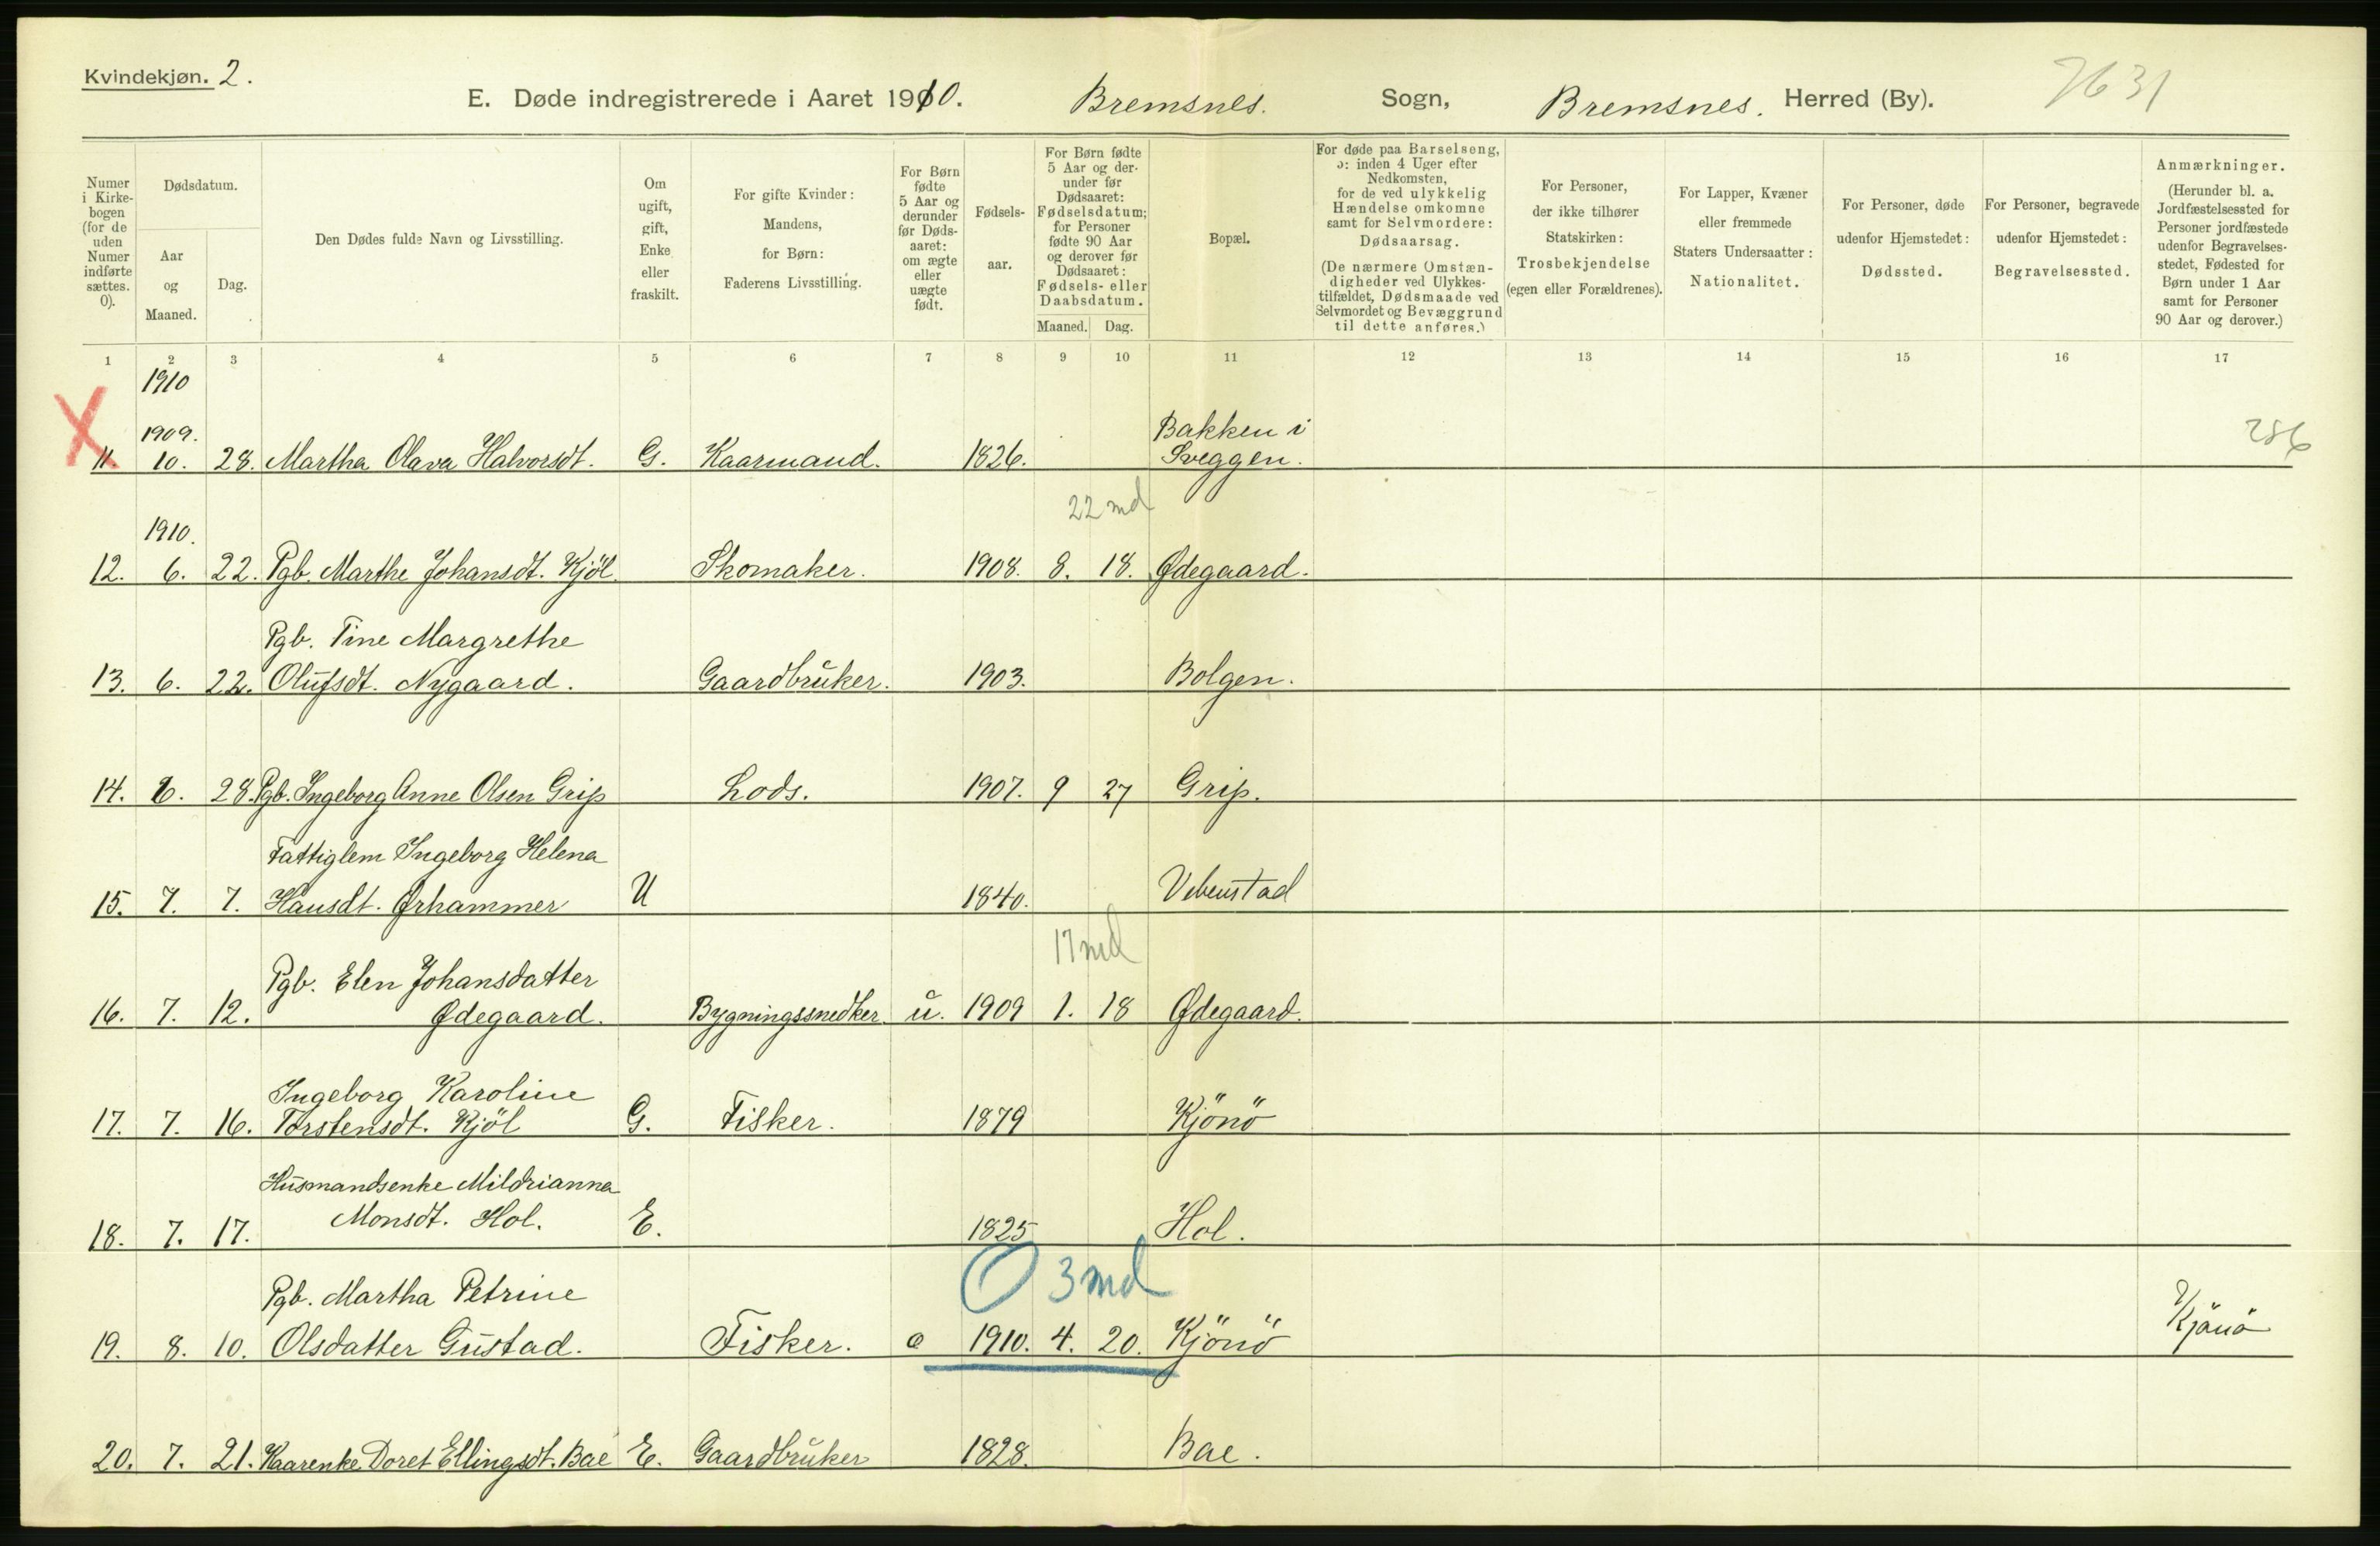 Kvindekjøn. 2.
E. Døde indregistrerede i Aaret 1910. Bremsnes. Sogn, Bremsnes. Herred (By). 7631
Numer
i Kirke-
bogen
(for de
uden
Numer
indførte
sættes.
0).
Dødsdatum.
Aar
og
Maaned.
Dag.
Den Dødes fulde Navn og Livsstilling.
Om
ugift,
gift,
Enke
eller
fraskilt.
For gifte Kvinder:
Mandens,
for Børn:
Faderens Livsstilling.
For Børn
fødte
5 Aar og
derunder
før Døds-
aaret:
om ægte
eller
uægte
født.
Fødsels-
aar.
For Børn fødte
5 Aar og der-
under før
Dødsaaret:
Fødselsdatum;
for Personer
fødte 90 Aar
og derover før
Dødsaaret:
Fødsels- eller
Daabsdatum.
Maaned. Dag.
Bopæl.
For døde paa Barselseng,
ɔ: inden 4 Uger efter
Nedkomsten,
for de ved ulykkelig
Hændelse omkomne
samt for Selvmordere:
Dødsaarsag.
(De nærmere Omstæn-
digheder ved Ulykkes-
tilfældet, Dødsmaade ved
Selvmordet og Bevæggrund
til dette anføres.)
For Personer,
der ikke tilhører
Statskirken:
Trosbekjendelse
(egen eller Forældrenes).
For Lapper, Kvæner
eller fremmede
Staters Undersaatter:
Nationalitet.
For Personer, døde
udenfor Hjemstedet:
Dødssted.
For Personer, begravede
udenfor Hjemstedet:
Begravelsessted.
Anmærkninger.
(Herunder bl. a.
Jordfæstelsessted for
Personer jordfæstede
udenfor Begravelses-
stedet, Fødested for
Børn under 1 Aar
samt for Personer
90 Aar og derover.)
1 2 3 4 5 6 7 8 9 10 11 12 13 14 15 16 17
1910
1909. Bakken i 286
11. 10. 28. Martha Olava Halvorsdt. G. Kaarmand. 1826. Sveggen.
22 md
1910.
12. 6. 22. Pgb. Marthe Johansdt. Kjöl. Skomaker. 1908. 8. 18. Ødegaard.
Pgb. Tine Margrethe
13. 6. 22. Olufsdt. Nygaard. Gaardbruker. 1903. Bolgen.
14. 6. 28. Pgb. Ingeborg Anne Olsen Grip Lods. 1907. 9 27 Grip.
Fattiglem Ingeborg Helena
15. 7. 7. Hansdt. Ørhammer U 1840. Vebenstad
17 md
Pgb. Elen Johansdatter
16. 7. 12. Ødegaard. Bygningssnedker. u. 1909 1. 18 Ødegaard.
Ingeborg Karoline
17. 7. 16. Torstensdt. Kjöl G. Fisker. 1879 Kjönö
Husmandsenke Mildrianna
18. 7. 17. Monsdt. Hol. E. 1825 Hol.
0 3 md
Pgb. Martha Petrine
19. 8. 10. Olsdatter Gustad. Fisker. 1910. 4. 20. Kjönö Kjönö
20. 7. 21. Kaarenke Doret Ellingsdt. Bae E. Gaardbruker 1828. Bae.